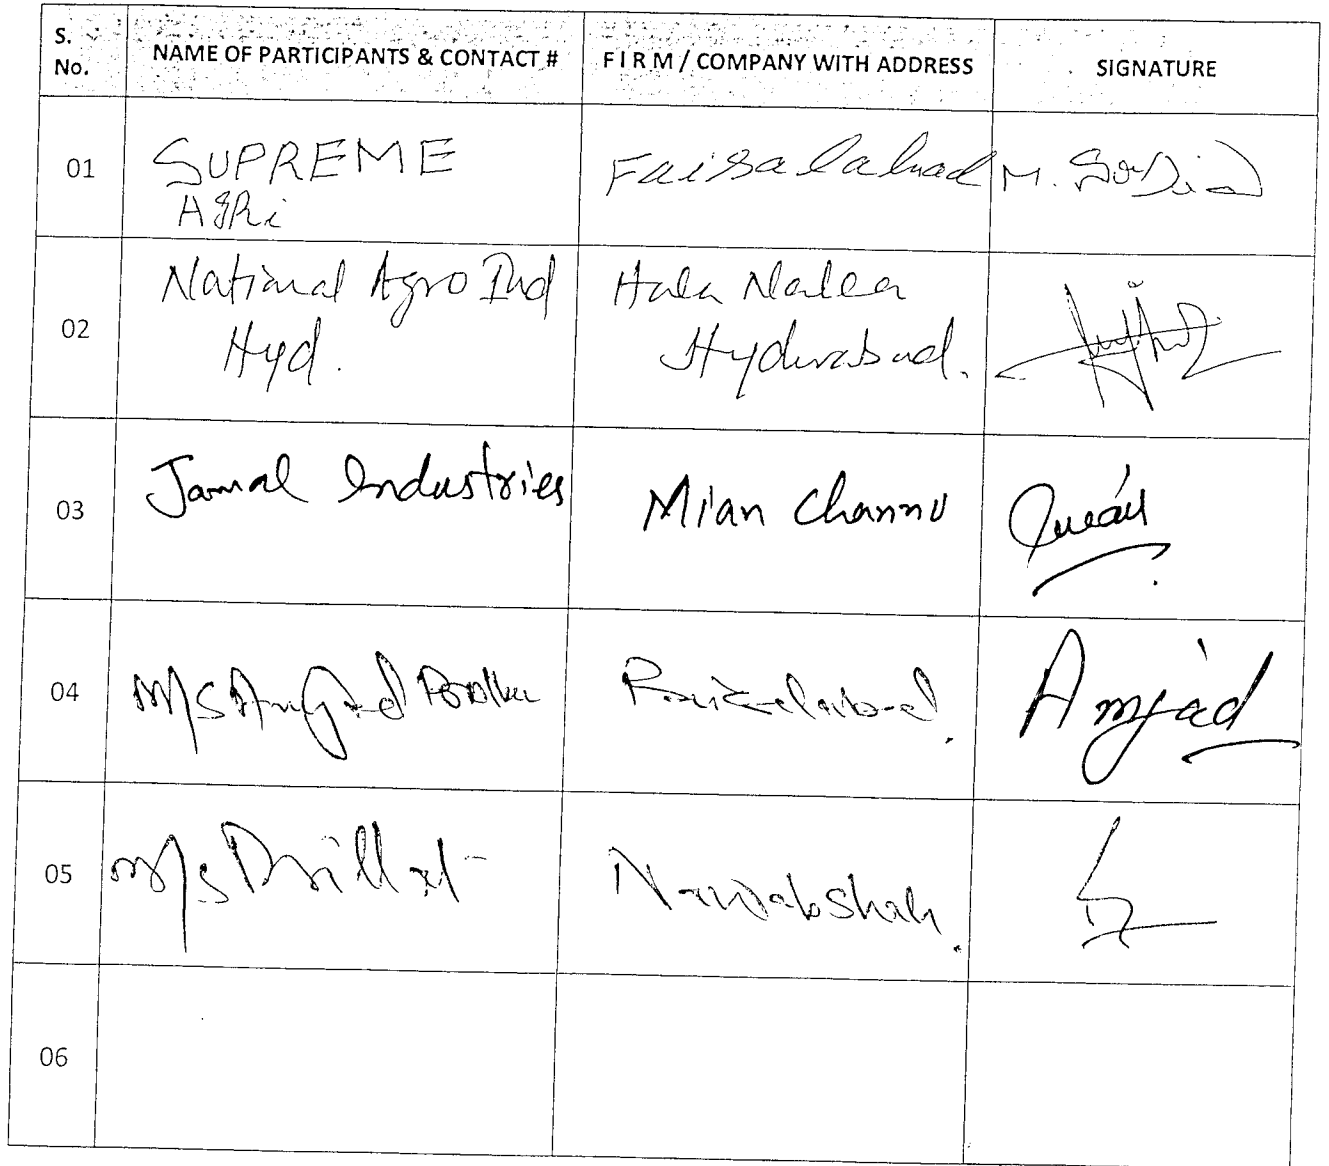 S. No.
NAME OF PARTICIPANTS & CONTACT #
FIRM / COMPANY WITH ADDRESS
SIGNATURE
01
SUPREME
AgRi
Faisalabad
M.
02
National Agro Ind
Hyd.
Hala Naka
Hyderabad.
03
Jamal Industries
Mian Channu
04
M/S Amjad
Amjad
05
M/s
Nawabshah.
06